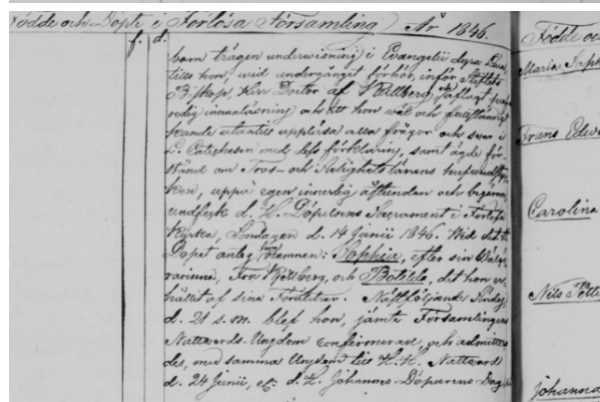 Födde och Döpte i Förlösa Församling År 1846.
f. d.
barn trägen underwisning i Evangelii dyra
tills hon, wid undergånget förhör, inför Stiftets
Biskop, Herr Doctor af aflagt
redig innanläsning och att hon wäl och
kunde utantill uppläsa alla frågor och swar i
L. Catechesen med dess förklaring, samt ägde för-
stånd om Tros- och Salighets lärans hufwud
ken, uppå egen innerlig åstundan och begäran
undfick d. H. Döpelsens Sacrament i Förlösa
Kyrka, Söndagen d. 14 Junii 1846. Wid det
Dopet antog hon Namnen: Sophia, efter sin
rarinna, Fru och Botilda, det hon er-
hållit af sina Föräldrar. Nästföljande Söndag
d. 21 s. m. blef hon, jämte Församlingens
Nattwards-Ungdom confirmerad, och admitte
des, med samma Ungdom till H. H. Nattward
d. 24 Junii, d. H. Johannis Döparens Dag
Födde och
Maria Soph
Frans Edw
Carolina
Nils Pette
Johanna